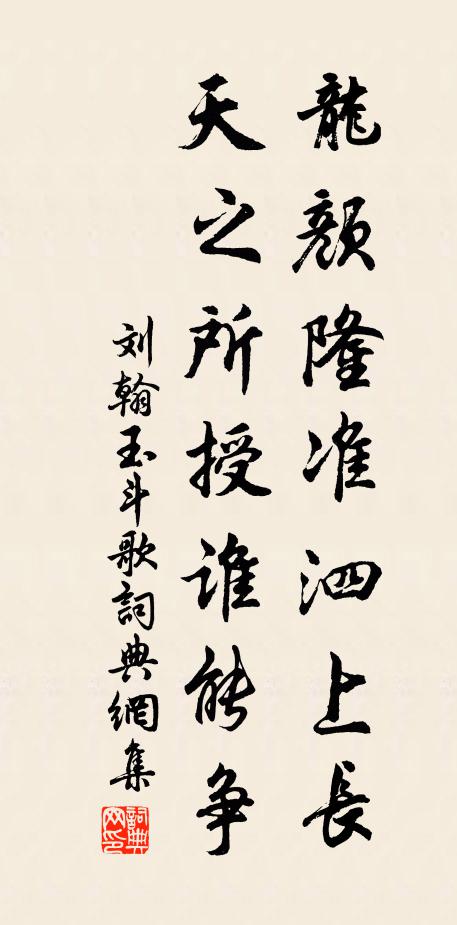 龍顏隆准泗上長
天之所授誰能争
刘翰玉斗歌詞典網集
詞典網印